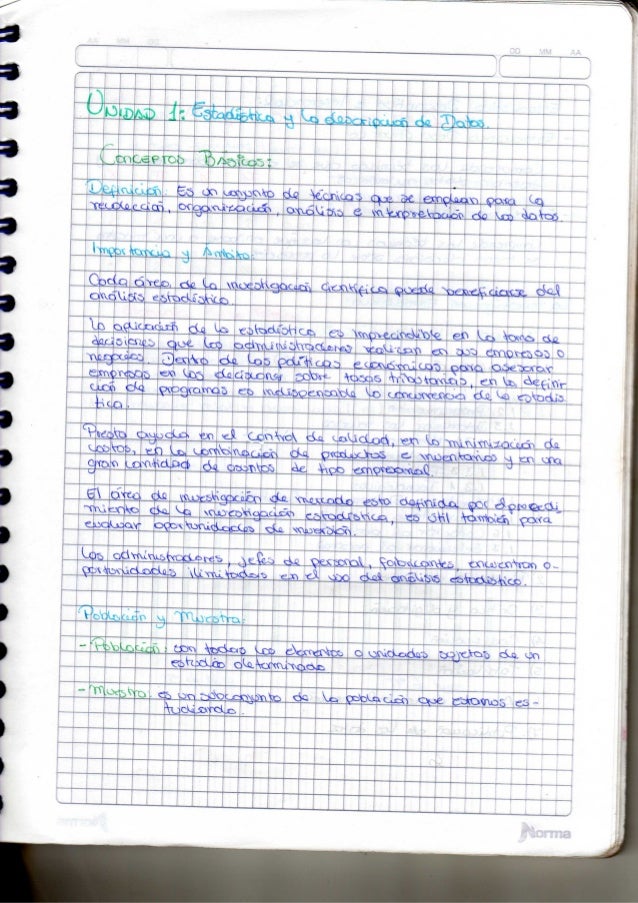 AA MM DD
DD MM AA
UNIDAD 1: Estadística y la descripción de Datos.
CONCEPTOS BÁSICOS:
Definición: Es un conjunto de técnicas que se emplean para la
recolección, organización, análisis e interpretación de los datos.
Importancia y Ámbito:
Cada área de la investigación científica puede beneficiarse del
análisis estadístico.
La aplicación de la estadística es imprecindible en la toma de
decisiones que los administradores realizan en sus empresas o
negocios. Dentro de las políticas económicas para asesorar
empresas en las decisiones sobre tasas tributarias, en la defini
ción de programas es indispensable la concurrencia de la estadís
tica.
Presta ayuda en el control de calidad, en la minimización de
costos, en la combinación de productos e inventarios y en una
gran cantidad de asuntos de tipo empresarial.
El área de investigación de mercado esta definida por el procedi
miento de la investigación estadística, es útil también para
evaluar oportunidades de inversión.
Los administradores, jefes de personal, fabricantes, encuentran o-
portunidades ilimitadas en el uso del análisis estadístico.
Población y Muestra:
- Población: son todos los elementos o unidades sujetos de un
estudio determinado
- Muestra: es un subconjunto de la población que estamos es-
tudiando.
Norma